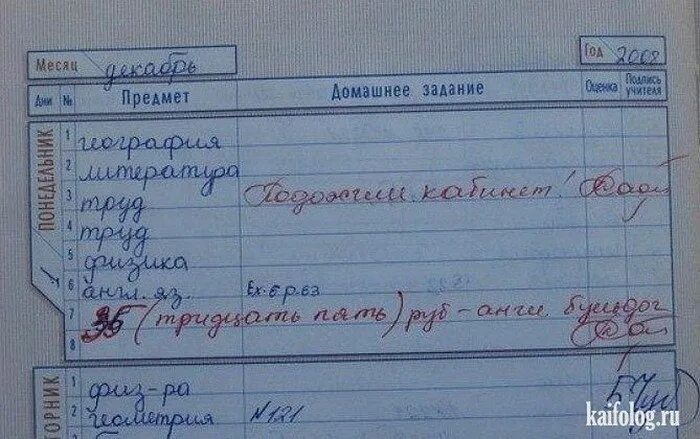 Месяц декабрь Год 2008
Дни № Предмет Домашнее задание Оценка Подпись учителя
ПОНЕДЕЛЬНИК
1 география
2 литература
3 труд Подожгли кабинет!
4 труд
5 физика
6 англ. яз. Ex. 6 p. 63
7 35 (тридцать пять) руб - англ. бульдог
8
ВТОРНИК
1 физ-ра
2 геометрия №121 5
kaifolog.ru